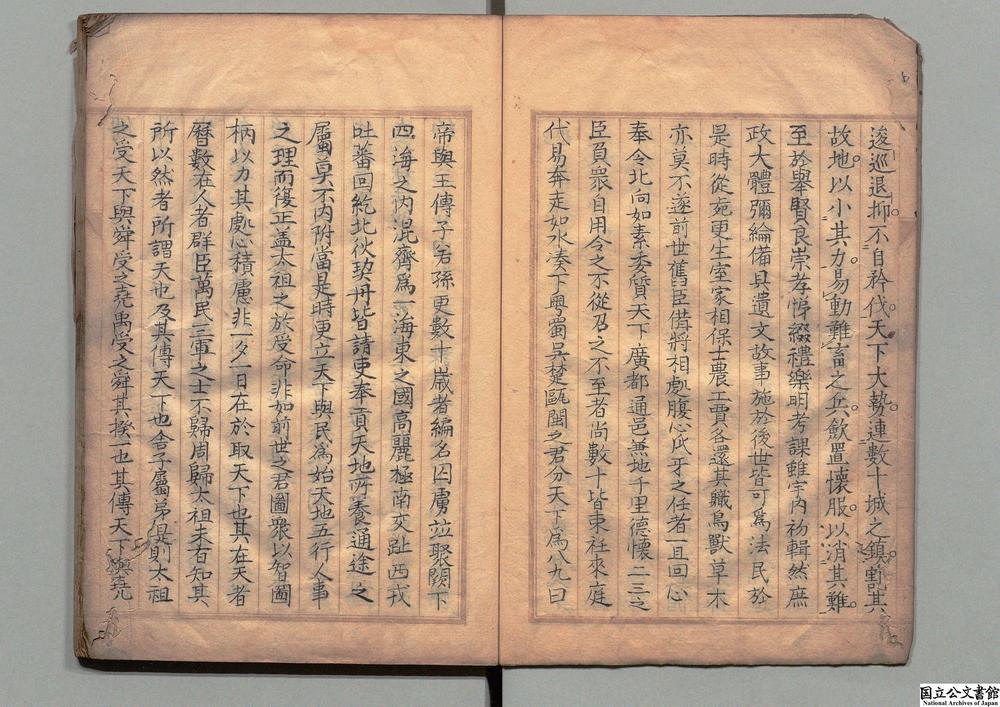 逡巡退抑不自矜伐天下大勢連數十城之鎮割其
故地以小其力易動難畜之兵歛置懷服以消其難
至於舉賢良崇孝悌綴禮樂明考課雖宇内初輯然庶
政大體彌綸備具遺文故事施於後世皆可為法民於
是時從死更生室家相保士農工賈各還其職鳥獸草木
亦莫不遂前世舊臣備將相處腹心爪牙之任者一旦回心
奉令北向如素委質天下廣都通邑兼地千里德懷二三之
臣負衆自用令之不從召之不至者尚數十皆束衽來庭
代易奔走如水湊下粤蜀吴楚甌閩之君分天下為八九曰
帝與王傳子若孫更數十歲者編名囚虜竝聚闕下
四海之内混齊為一海東之國高麗極南交趾西戎
吐蕃回紇北狄玏丹皆請吏奉貢天地所養通途之
屬莫不内附當是時更立天下與民為始天地五行人事
之理而復正盖太祖之於受命非如前世之君圖衆以智圖
柄以力其處心積慮非一夕一日在於取天下也其在天者
曆數在人者群臣萬民三軍之士不歸周歸太祖未有知其
所以然者所謂天也及其傳天下也舍子屬弟是則太祖
之受天下與舜受之堯禹受之舜其揆一也其傳天下與堯
国立公文書館
National Archives of Japan